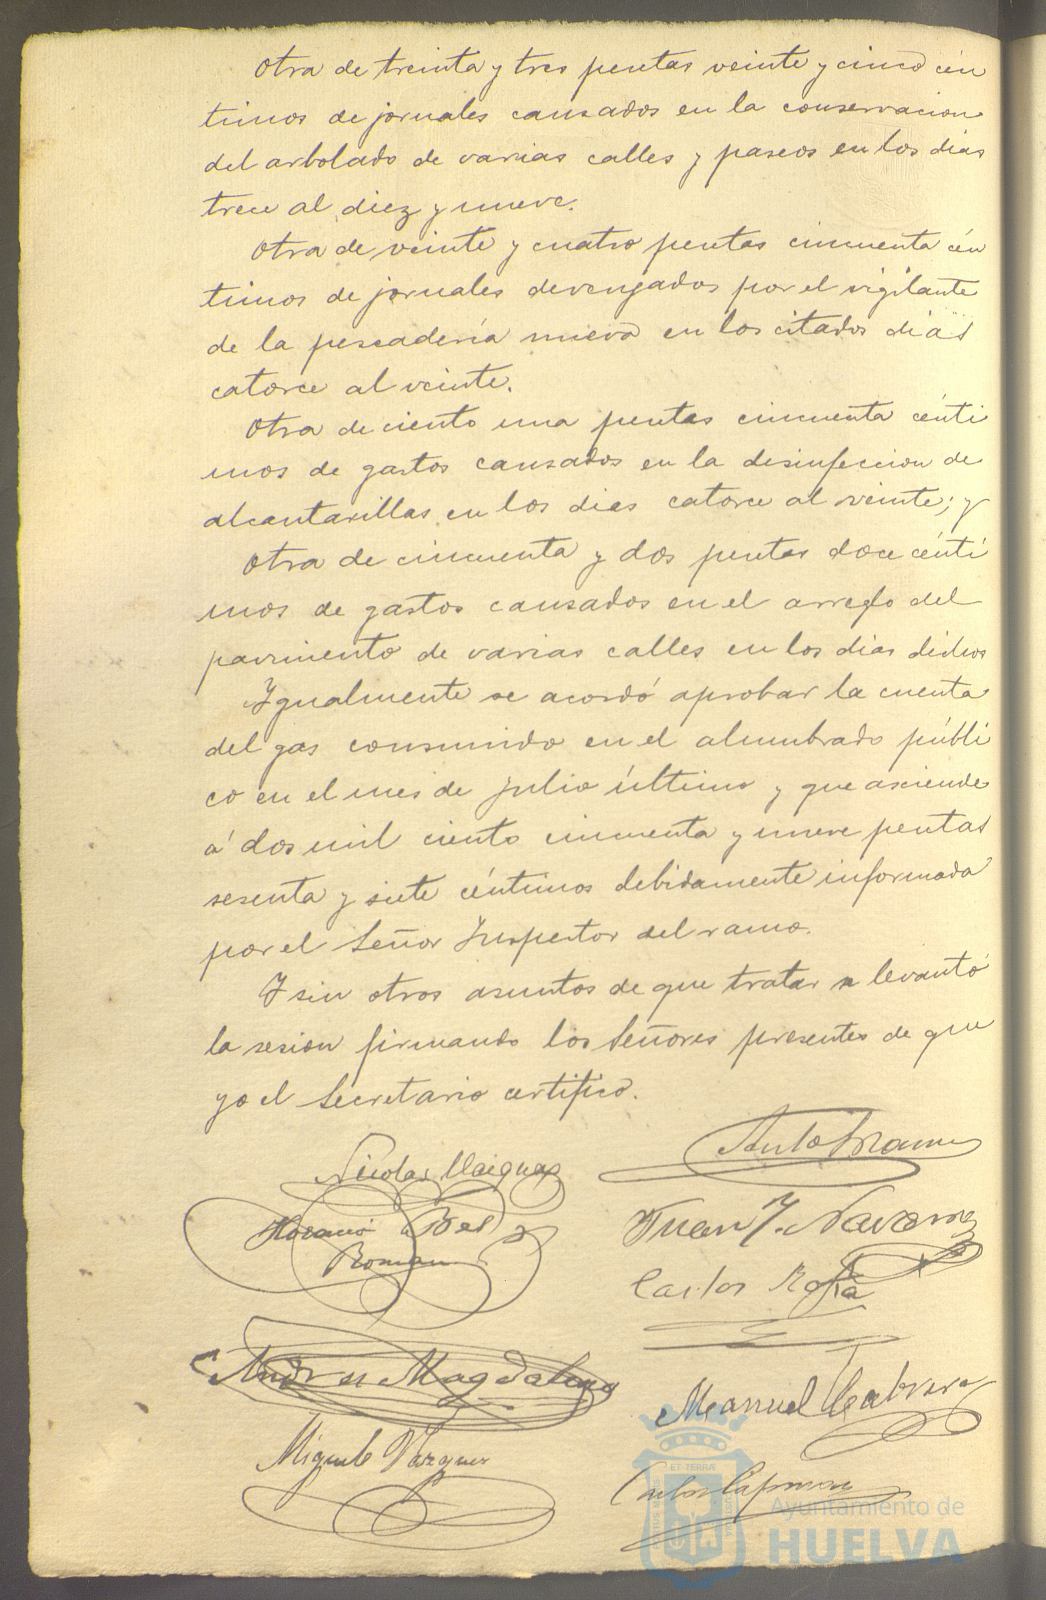 Otra de treinta y tres pesetas veinte y cinco cén
timos de jornales causados en la conservacion
del arbolado de varias calles y paseos en los dias
trece al diez y nueve.
Otra de veinte y cuatro pesetas cincuenta cén
timos de jornales devengados por el vigilante
de la pescadería nueva en los citados dias
catorce al veinte.
Otra de ciento una pesetas cincuenta cénti
mos de gastos causados en la desinfeccion de
alcantarillas en los dias catorce al veinte; y
Otra de cincuenta y dos pesetas doce cénti
mos de gastos causados en el arreglo del
pavimento de varias calles en los dias dichos
Igualmente se acordó aprobar la cuenta
del gas consumido en el alumbrado públi
co en el mes de Julio último y que asciende
á dos mil ciento cincuenta y nueve pesetas
sesenta y siete céntimos debidamente informada
por el Señor Inspector del ramo.
Y sin otros asuntos de que tratar se levantó
la sesion firmando los Señores presentes de que
yo el Secretario certifico.
Nicolas Vazquez
Horacio Bel
Roman
Juan J. Navarro
Carlos
Andres Magdalena
Manuel Cabrera
Miguel Vazquez
Carlos
ET TERRÆ
Ayuntamiento de
HUELVA